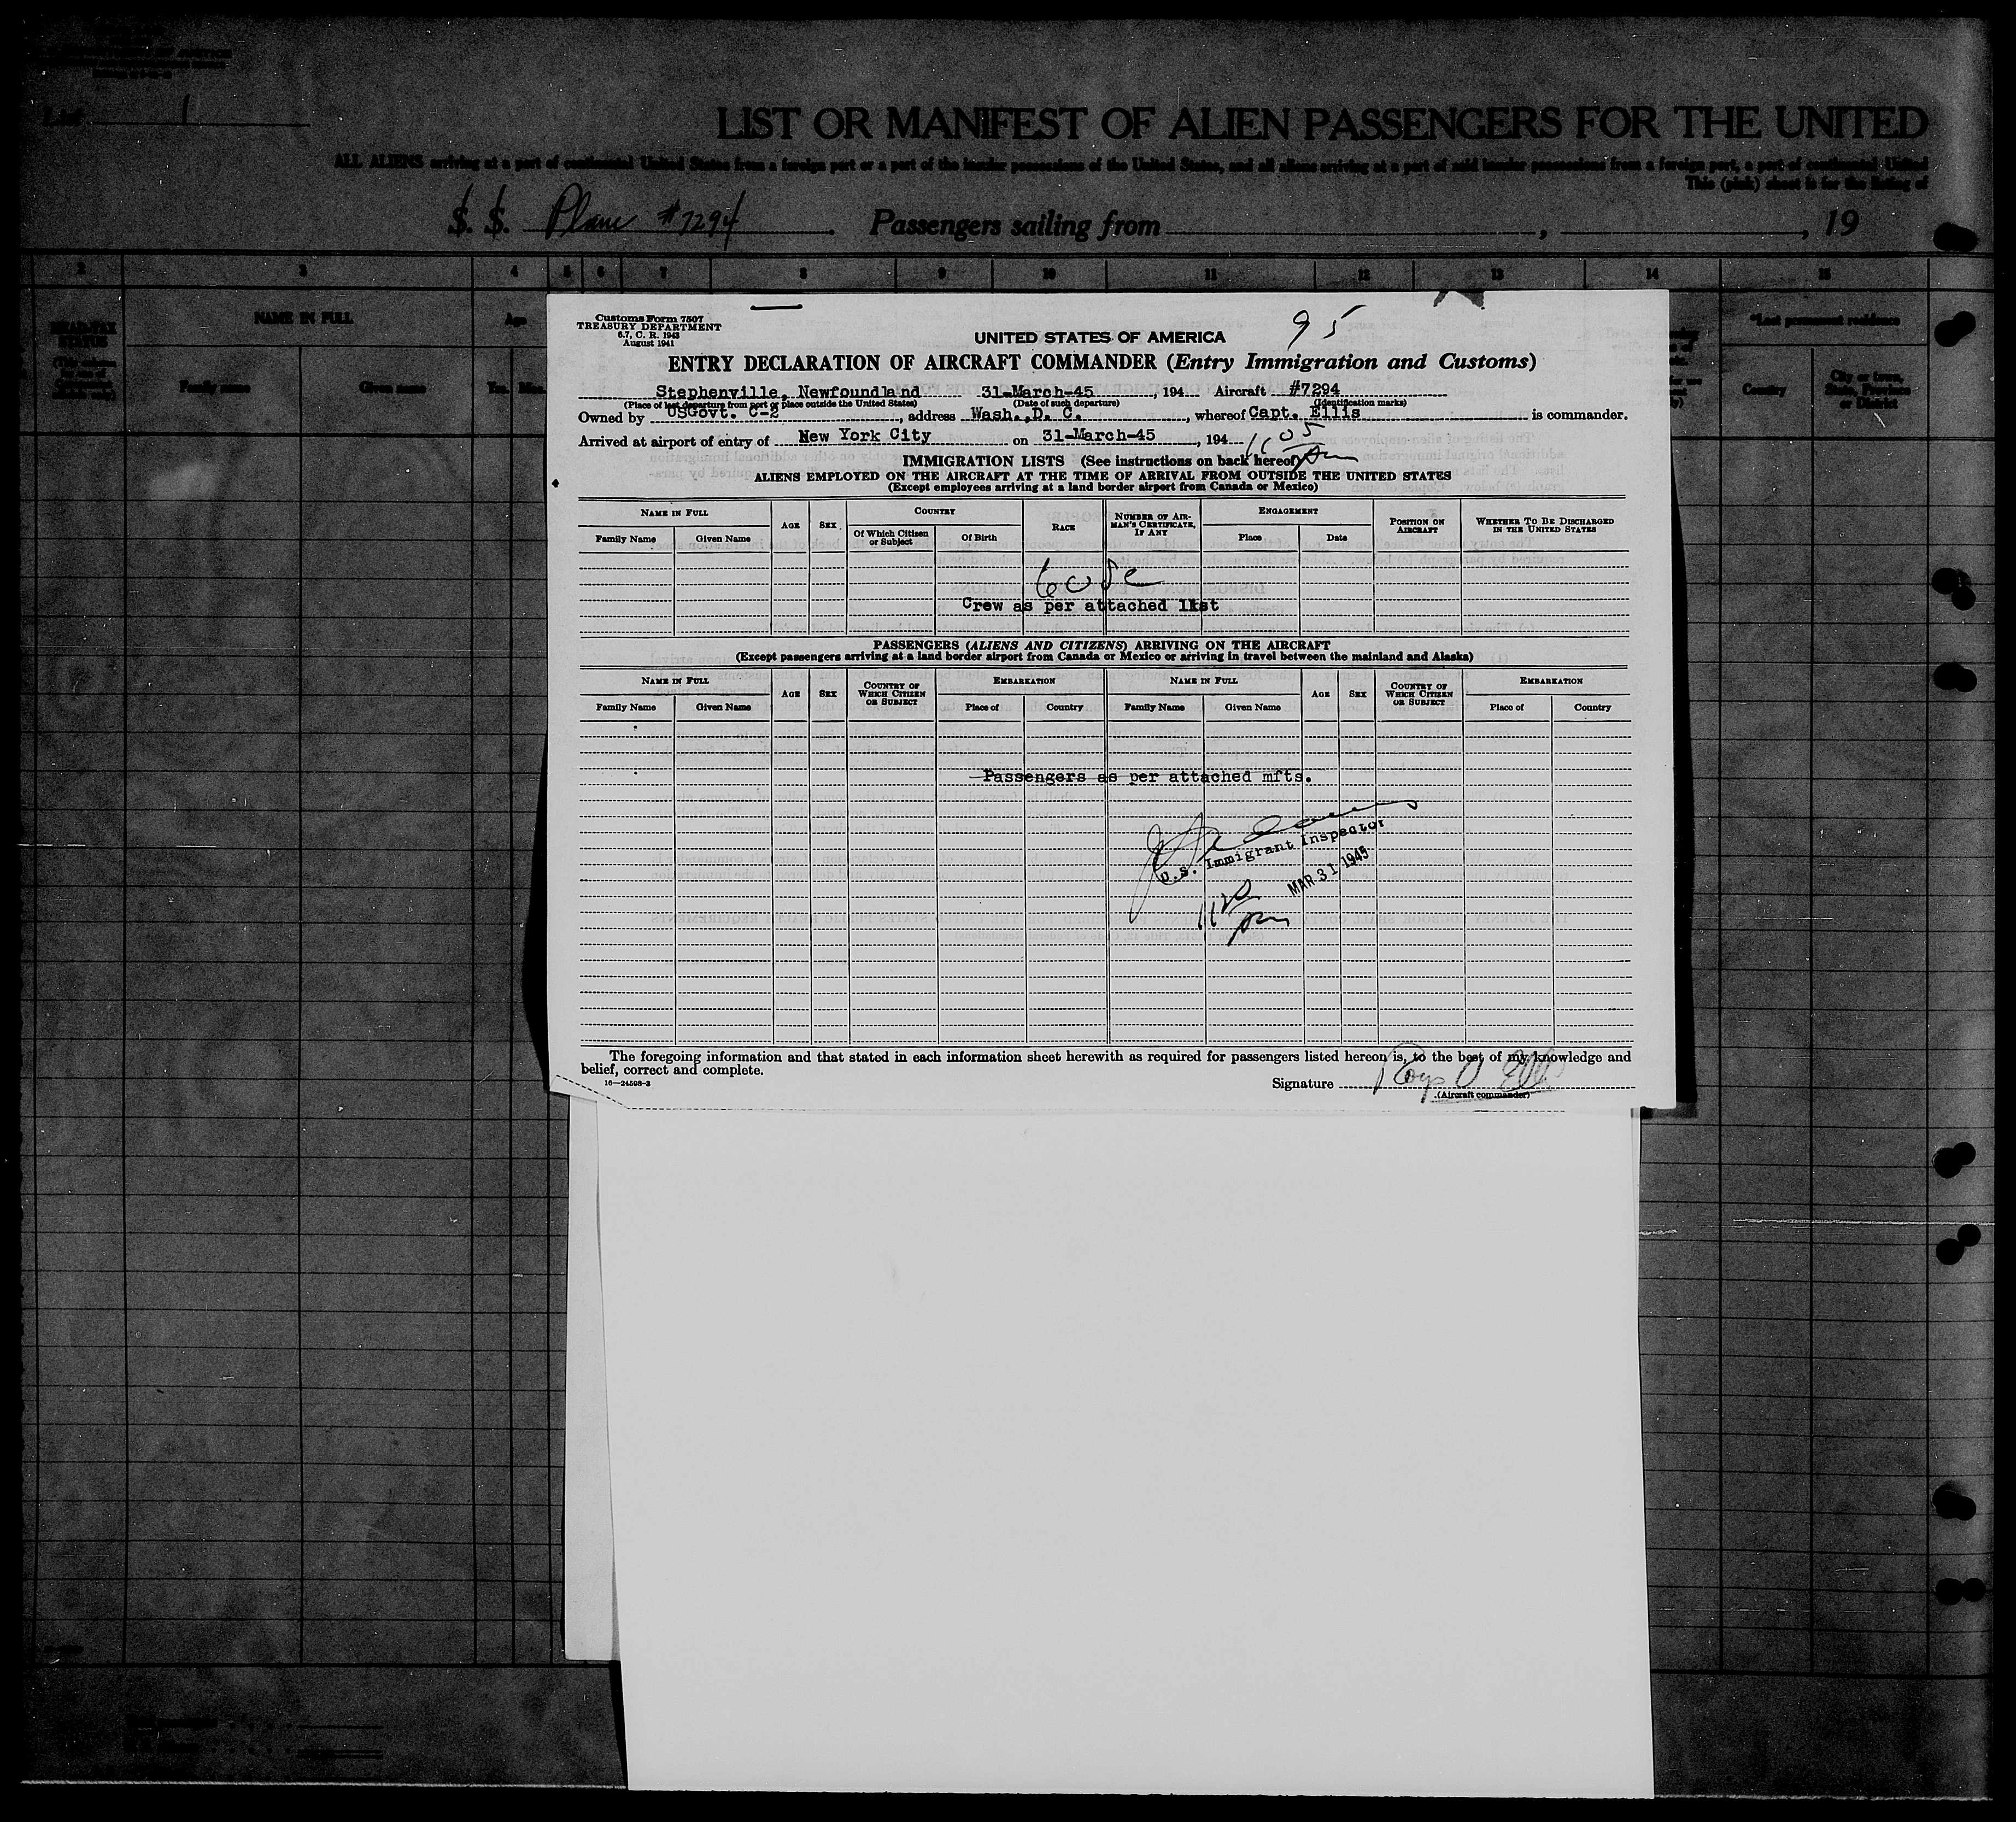 List 1
LIST OR MANIFEST OF ALIEN PASSENGERS FOR THE UNITED
ALL ALIENS arriving at a port of continental United States from a foreign port or a port of the insular possessions of the United States, and all aliens arriving at a port of said insular possessions from a foreign port, a port of continental United
This (pink) sheet is for the listing of
S. S. Plane #7294 Passengers sailing from , , 19
2 3 4 5 6 7 8 9 10 11 12 13 14 15
HEAD-TAX STATUS
NAME IN FULL
Age
*Last permanent residence
Family name Given name Yrs. Mos.
Country
City or town, State, Province or District
Customs Form 7507
TREASURY DEPARTMENT
6.7, C. R. 1943
August 1941
95
UNITED STATES OF AMERICA
ENTRY DECLARATION OF AIRCRAFT COMMANDER (Entry Immigration and Customs)
Stephenville, Newfoundland 31-March-45, 194 Aircraft #7294
(Place of last departure from port or place outside the United States) (Date of such departure) (Identification marks)
Owned by USGovt. C-2, address Wash.,D. C., whereof Capt. Ellis is commander.
Arrived at airport of entry of New York City on 31-March-45, 194 1105 pm
IMMIGRATION LISTS (See instructions on back hereof)
ALIENS EMPLOYED ON THE AIRCRAFT AT THE TIME OF ARRIVAL FROM OUTSIDE THE UNITED STATES
(Except employees arriving at a land border airport from Canada or Mexico)
NAME IN FULL AGE SEX COUNTRY RACE NUMBER OF AIRMAN'S CERTIFICATE, IF ANY ENGAGEMENT POSITION ON AIRCRAFT WHETHER TO BE DISCHARGED IN THE UNITED STATES
Family Name Given Name Of Which Citizen or Subject Of Birth Place Date
Crew as per attached list
PASSENGERS (ALIENS AND CITIZENS) ARRIVING ON THE AIRCRAFT
(Except passengers arriving at a land border airport from Canada or Mexico or arriving in travel between the mainland and Alaska)
NAME IN FULL AGE SEX COUNTRY OF WHICH CITIZEN OR SUBJECT EMBARKATION NAME IN FULL AGE SEX COUNTRY OF WHICH CITIZEN OR SUBJECT EMBARKATION
Family Name Given Name Place of Country Family Name Given Name Place of Country
Passengers as per attached mfts.
U.S. Immigrant Inspector
MAR 31 1945
1120 pm
The foregoing information and that stated in each information sheet herewith as required for passengers listed hereon is, to the best of my knowledge and
belief, correct and complete.
16—24598-3
Signature
(Aircraft commander)